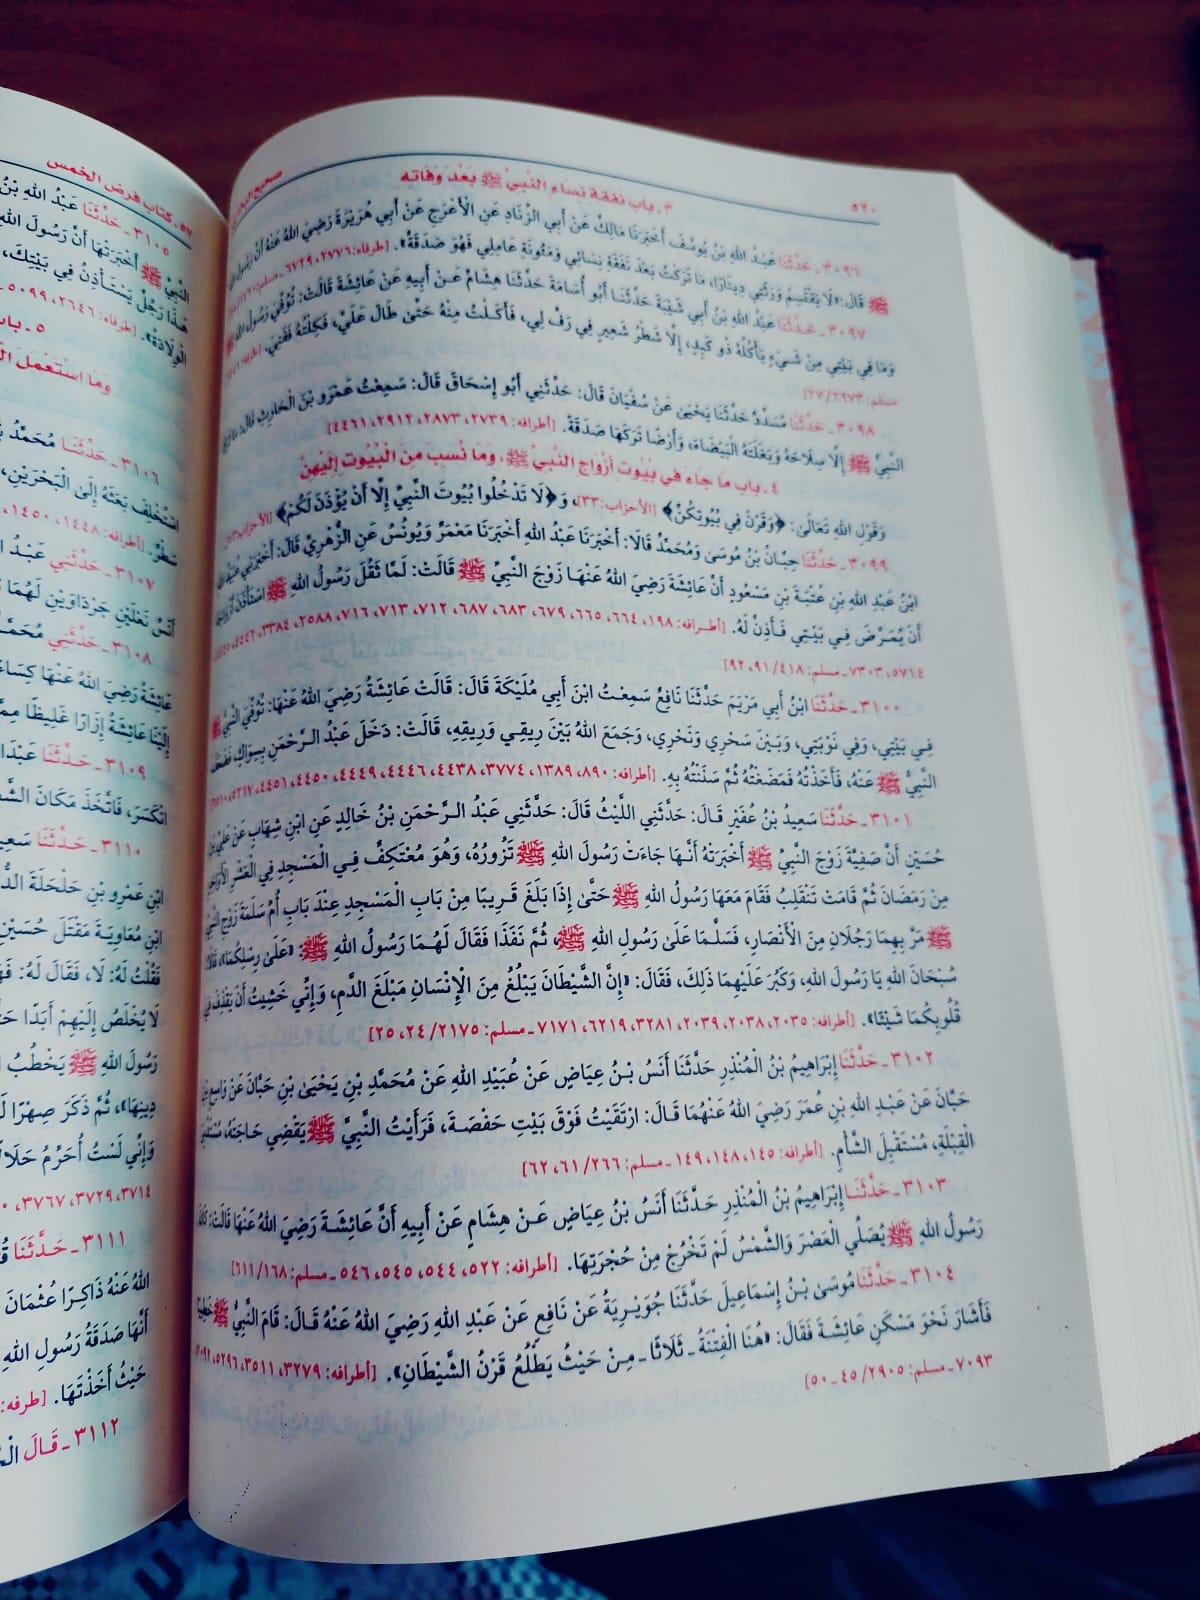 ٥٢٠
٣ ـ باب نفقة نساء النبي ﷺ بعد وفاته
صحيح
٣٠٩٦ ـ حَدَّثَنَا عَبْدُ اللهِ بْنُ يُوسُفَ أَخْبَرَنَا مَالِكٌ عَنْ أَبِي الزِّنَادِ عَنِ الْأَعْرَجِ عَنْ أَبِي هُرَيْرَةَ رَضِيَ اللهُ عَنْهُ أَنَّ رَسُولَ
ﷺ قَالَ: «لَا يَقْتَسِمُ وَرَثَتِي دِينَارًا، مَا تَرَكْتُ بَعْدَ نَفَقَةِ نِسَائِي وَمَئُونَةِ عَامِلِي فَهُوَ صَدَقَةٌ». [طرفاه: ٢٧٧٦، ٦٧٢٩ ـ مسلم:
٣٠٩٧ ـ حَدَّثَنَا عَبْدُ اللهِ بْنُ أَبِي شَيْبَةَ حَدَّثَنَا أَبُو أُسَامَةَ حَدَّثَنَا هِشَامٌ عَنْ أَبِيهِ عَنْ عَائِشَةَ قَالَتْ: تُوُفِّيَ رَسُولُ اللهِ ﷺ
وَمَا فِي بَيْتِي مِنْ شَيْءٍ يَأْكُلُهُ ذُو كَبِدٍ، إِلَّا شَطْرُ شَعِيرٍ فِي رَفٍّ لِي، فَأَكَلْتُ مِنْهُ حَتَّىٰ طَالَ عَلَيَّ، فَكِلْتُهُ فَفَنِيَ.
مسلم: ٢٧/٢٩٧٣]
٣٠٩٨ ـ حَدَّثَنَا مُسَدَّدٌ حَدَّثَنَا يَحْيَىٰ عَنْ سُفْيَانَ قَالَ: حَدَّثَنِي أَبُو إِسْحَاقَ قَالَ: سَمِعْتُ عَمْرَو بْنَ الْحَارِثِ قَالَ:
النَّبِيُّ ﷺ إِلَّا سِلَاحَهُ وَبَغْلَتَهُ الْبَيْضَاءَ، وَأَرْضًا تَرَكَهَا صَدَقَةً. [أطرافه: ٢٧٣٩، ٢٨٧٣، ٢٩١٢، ٤٤٦١]
٤ ـ باب ما جاء في بيوت أزواج النبي ﷺ، وما نسب من البيوت إليهن
وَقَوْلِ اللهِ تَعَالَىٰ: ﴿وَقَرْنَ فِي بُيُوتِكُنَّ﴾ [الأحزاب: ٣٣]، وَ﴿لَا تَدْخُلُوا بُيُوتَ النَّبِيِّ إِلَّا أَنْ يُؤْذَنَ لَكُمْ﴾ [الأحزاب:
٣٠٩٩ ـ حَدَّثَنَا حِبَّانُ بْنُ مُوسَىٰ وَمُحَمَّدٌ قَالَا: أَخْبَرَنَا عَبْدُ اللهِ أَخْبَرَنَا مَعْمَرٌ وَيُونُسُ عَنِ الزُّهْرِيِّ قَالَ: أَخْبَرَنِي
ابْنُ عَبْدِ اللهِ بْنِ عُتْبَةَ بْنِ مَسْعُودٍ أَنَّ عَائِشَةَ رَضِيَ اللهُ عَنْهَا زَوْجَ النَّبِيِّ ﷺ قَالَتْ: لَمَّا ثَقُلَ رَسُولُ اللهِ ﷺ اسْتَأْذَنَ أَزْوَاجَهُ
أَنْ يُمَرَّضَ فِي بَيْتِي فَأَذِنَّ لَهُ. [أطرافه: ١٩٨، ٦٦٤، ٦٦٥، ٦٧٩، ٦٨٣، ٦٨٧، ٧١٢، ٧١٣، ٧١٦، ٢٥٨٨، ٣٣٨٤، ٤٤٤٢،
٥٧١٤، ٧٣٠٣ ـ مسلم: ٤١٨/ ٩١، ٩٢]
٣١٠٠ ـ حَدَّثَنَا ابْنُ أَبِي مَرْيَمَ حَدَّثَنَا نَافِعٌ سَمِعْتُ ابْنَ أَبِي مُلَيْكَةَ قَالَ: قَالَتْ عَائِشَةُ رَضِيَ اللهُ عَنْهَا: تُوُفِّيَ النَّبِيُّ ﷺ
فِي بَيْتِي، وَفِي نَوْبَتِي، وَبَيْنَ سَحْرِي وَنَحْرِي، وَجَمَعَ اللهُ بَيْنَ رِيقِي وَرِيقِهِ، قَالَتْ: دَخَلَ عَبْدُ الرَّحْمَنِ بِسِوَاكٍ، فَضَعُفَ
النَّبِيُّ ﷺ عَنْهُ، فَأَخَذْتُهُ فَمَضَغْتُهُ ثُمَّ سَنَنْتُهُ بِهِ. [أطرافه: ٨٩٠، ١٣٨٩، ٣٧٧٤، ٤٤٣٨، ٤٤٤٦، ٤٤٤٩، ٤٤٥٠، ٤٤٥١، ٥٢١٧، ٦٥١٠]
٣١٠١ ـ حَدَّثَنَا سَعِيدُ بْنُ عُفَيْرٍ قَالَ: حَدَّثَنِي اللَّيْثُ قَالَ: حَدَّثَنِي عَبْدُ الرَّحْمَنِ بْنُ خَالِدٍ عَنِ ابْنِ شِهَابٍ عَنْ عَلِيِّ بْنِ
حُسَيْنٍ أَنَّ صَفِيَّةَ زَوْجَ النَّبِيِّ ﷺ أَخْبَرَتْهُ أَنَّهَا جَاءَتْ رَسُولَ اللهِ ﷺ تَزُورُهُ، وَهُوَ مُعْتَكِفٌ فِي الْمَسْجِدِ فِي الْعَشْرِ الْأَوَاخِرِ
مِنْ رَمَضَانَ ثُمَّ قَامَتْ تَنْقَلِبُ فَقَامَ مَعَهَا رَسُولُ اللهِ ﷺ حَتَّىٰ إِذَا بَلَغَ قَرِيبًا مِنْ بَابِ الْمَسْجِدِ عِنْدَ بَابِ أُمِّ سَلَمَةَ زَوْجِ النَّبِيِّ
ﷺ مَرَّ بِهِمَا رَجُلَانِ مِنَ الْأَنْصَارِ، فَسَلَّمَا عَلَىٰ رَسُولِ اللهِ ﷺ، ثُمَّ نَفَذَا فَقَالَ لَهُمَا رَسُولُ اللهِ ﷺ: «عَلَىٰ رِسْلِكُمَا»، قَالَا:
سُبْحَانَ اللهِ يَا رَسُولَ اللهِ، وَكَبُرَ عَلَيْهِمَا ذَلِكَ، فَقَالَ: «إِنَّ الشَّيْطَانَ يَبْلُغُ مِنَ الْإِنْسَانِ مَبْلَغَ الدَّمِ، وَإِنِّي خَشِيتُ أَنْ يَقْذِفَ فِي
قُلُوبِكُمَا شَيْئًا». [أطرافه: ٢٠٣٥، ٢٠٣٨، ٢٠٣٩، ٣٢٨١، ٦٢١٩، ٧١٧١ ـ مسلم: ٢١٧٥/ ٢٤، ٢٥]
٣١٠٢ ـ حَدَّثَنَا إِبْرَاهِيمُ بْنُ الْمُنْذِرِ حَدَّثَنَا أَنَسُ بْنُ عِيَاضٍ عَنْ عُبَيْدِ اللهِ عَنْ مُحَمَّدِ بْنِ يَحْيَىٰ بْنِ حَبَّانَ عَنْ وَاسِعِ بْنِ
حَبَّانَ عَنْ عَبْدِ اللهِ بْنِ عُمَرَ رَضِيَ اللهُ عَنْهُمَا قَالَ: ارْتَقَيْتُ فَوْقَ بَيْتِ حَفْصَةَ، فَرَأَيْتُ النَّبِيَّ ﷺ يَقْضِي حَاجَتَهُ، مُسْتَدْبِرَ
الْقِبْلَةِ، مُسْتَقْبِلَ الشَّأْمِ. [أطرافه: ١٤٥، ١٤٨، ١٤٩ ـ مسلم: ٢٦٦/ ٦١، ٦٢]
٣١٠٣ ـ حَدَّثَنَا إِبْرَاهِيمُ بْنُ الْمُنْذِرِ حَدَّثَنَا أَنَسُ بْنُ عِيَاضٍ عَنْ هِشَامٍ عَنْ أَبِيهِ أَنَّ عَائِشَةَ رَضِيَ اللهُ عَنْهَا قَالَتْ: كَانَ
رَسُولُ اللهِ ﷺ يُصَلِّي الْعَصْرَ وَالشَّمْسُ لَمْ تَخْرُجْ مِنْ حُجْرَتِهَا. [أطرافه: ٥٢٢، ٥٤٤، ٥٤٥، ٥٤٦ ـ مسلم: ٦١١/١٦٨]
٣١٠٤ ـ حَدَّثَنَا مُوسَىٰ بْنُ إِسْمَاعِيلَ حَدَّثَنَا جُوَيْرِيَةُ عَنْ نَافِعٍ عَنْ عَبْدِ اللهِ رَضِيَ اللهُ عَنْهُ قَالَ: قَامَ النَّبِيُّ ﷺ خَطِيبًا
فَأَشَارَ نَحْوَ مَسْكَنِ عَائِشَةَ فَقَالَ: «هُنَا الْفِتْنَةُ ـ ثَلَاثًا ـ مِنْ حَيْثُ يَطْلُعُ قَرْنُ الشَّيْطَانِ». [أطرافه: ٣٢٧٩، ٣٥١١، ٥٢٩٦، ٧٠٩٢،
٧٠٩٣ ـ مسلم: ٢٩٠٥/ ٤٥ ـ ٥٠]
٥٧ ـ كتاب فرض الخمس
٣١٠٥ ـ حَدَّثَنَا عَبْدُ اللهِ بْنُ
النَّبِيِّ ﷺ أَخْبَرَتْهَا أَنَّ رَسُولَ اللهِ
هَذَا رَجُلٌ يَسْتَأْذِنُ فِي بَيْتِكَ،
الْوِلَادَةُ». [طرفاه: ٢٦٤٦، ٥٠٩٩ ـ
٥ ـ باب
وما استعمل
٣١٠٦ ـ حَدَّثَنَا مُحَمَّدُ
اسْتُخْلِفَ بَعَثَهُ إِلَى الْبَحْرَيْنِ،
سَطْرٌ. [أطرافه: ١٤٤٨، ١٤٥٠،
٣١٠٧ ـ حَدَّثَنِي عَبْدُ
أَنَسٌ نَعْلَيْنِ جَرْدَاوَيْنِ لَهُمَا
٣١٠٨ ـ حَدَّثَنِي مُحَمَّدُ
عَائِشَةُ رَضِيَ اللهُ عَنْهَا كِسَاءً
إِلَيْنَا عَائِشَةُ إِزَارًا غَلِيظًا مِمَّا
٣١٠٩ ـ حَدَّثَنَا عَبْدَانُ
انْكَسَرَ، فَاتَّخَذَ مَكَانَ
٣١١٠ ـ حَدَّثَنَا سَعِيدُ
ابْنِ عَمْرِو بْنِ حَلْحَلَةَ
ابْنِ مُعَاوِيَةَ مَقْتَلَ حُسَيْنِ
فَقُلْتُ لَهُ: لَا، فَقَالَ لَهُ:
لَا يُخْلَصُ إِلَيْهِمْ أَبَدًا
رَسُولَ اللهِ ﷺ يَخْطُبُ
دِينِهَا»، ثُمَّ ذَكَرَ صِهْرًا
وَإِنِّي لَسْتُ أُحَرِّمُ حَلَالًا
٣٧١٤، ٣٧٢٩، ٣٧٦٧،
٣١١١ ـ حَدَّثَنَا
اللهُ عَنْهُ ذَاكِرًا عُثْمَانَ
أَنَّهَا صَدَقَةُ رَسُولِ اللهِ
حَيْثُ أَخَذْتَهَا. [طرفه:
٣١١٢ ـ قَالَ